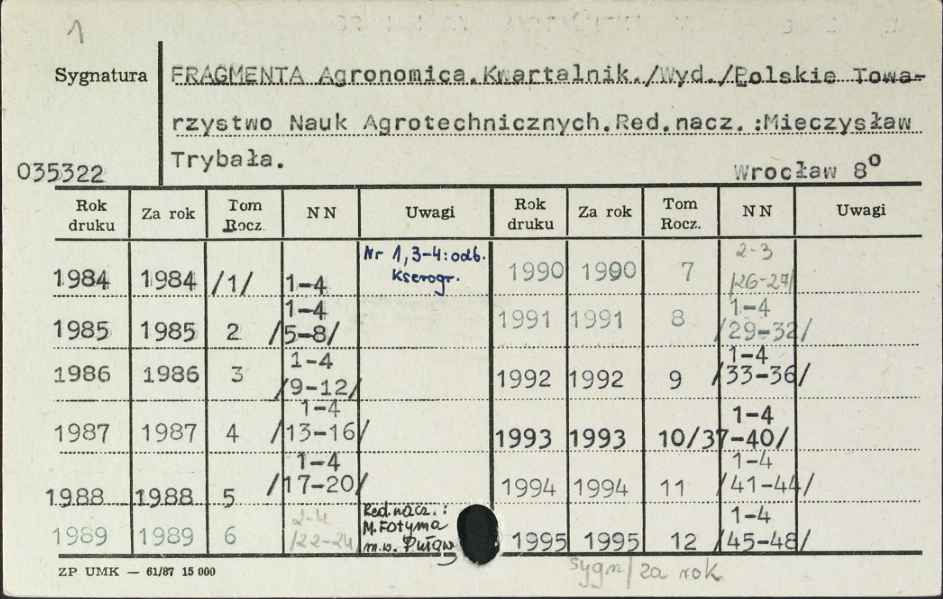 1
Sygnatura
FRAGMENTA Agronomica.Kwartalnik./Wyd./Polskie Towa-
rzystwo Nauk Agrotechnicznych.Red.nacz.:Mieczysław
Trybała.
035322
Wrocław 8°
Rok druku Za rok Tom Rocz. NN Uwagi Rok druku Za rok Tom Rocz. NN Uwagi
1984 1984 /1/ 1-4 Nr 1,3-4: odb. Kserogr. 1990 1990 7 2-3 /26-27/
1985 1985 2 1-4 /5-8/ 1991 1991 8 1-4 /29-32/
1986 1986 3 1-4 /9-12/ 1992 1992 9 1-4 /33-36/
1987 1987 4 1-4 /13-16/ 1993 1993 10 1-4 /37-40/
1988 1988 5 1-4 /17-20/ 1994 1994 11 1-4 /41-44/
1989 1989 6 2-4 /22-24/ Red.nacz.: M.Fotyma m.w. Puławy 1995 1995 12 1-4 /45-48/
ZP UMK — 61/87 15 000
sygn/za rok